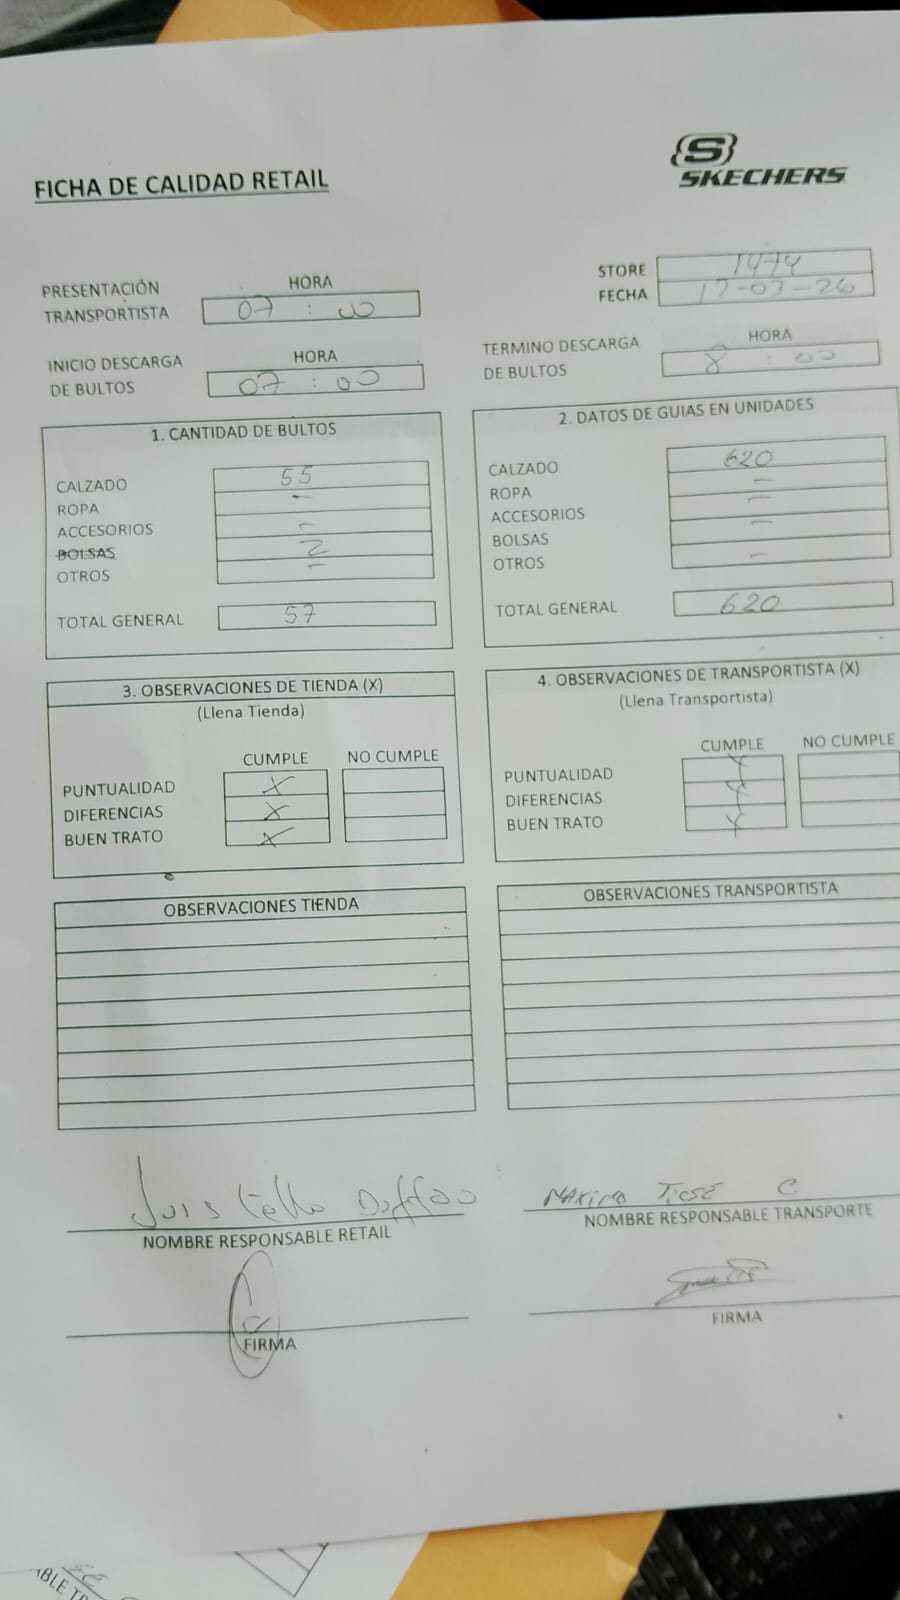 FICHA DE CALIDAD RETAIL
S
SKECHERS
STORE 1474
FECHA 17-03-26
PRESENTACIÓN TRANSPORTISTA HORA 07 : 00
INICIO DESCARGA DE BULTOS HORA 07 : 00
TERMINO DESCARGA DE BULTOS HORA 8 : 00
1. CANTIDAD DE BULTOS
CALZADO 55
ROPA -
ACCESORIOS -
BOLSAS 2
OTROS -
TOTAL GENERAL 57
2. DATOS DE GUIAS EN UNIDADES
CALZADO 620
ROPA -
ACCESORIOS -
BOLSAS -
OTROS -
TOTAL GENERAL 620
3. OBSERVACIONES DE TIENDA (X)
(Llena Tienda)
CUMPLE NO CUMPLE
PUNTUALIDAD X
DIFERENCIAS X
BUEN TRATO X
4. OBSERVACIONES DE TRANSPORTISTA (X)
(Llena Transportista)
CUMPLE NO CUMPLE
PUNTUALIDAD X
DIFERENCIAS X
BUEN TRATO X
OBSERVACIONES TIENDA
OBSERVACIONES TRANSPORTISTA
Luis Tello
NOMBRE RESPONSABLE RETAIL
FIRMA
MAXIMO TICSE C
NOMBRE RESPONSABLE TRANSPORTE
FIRMA